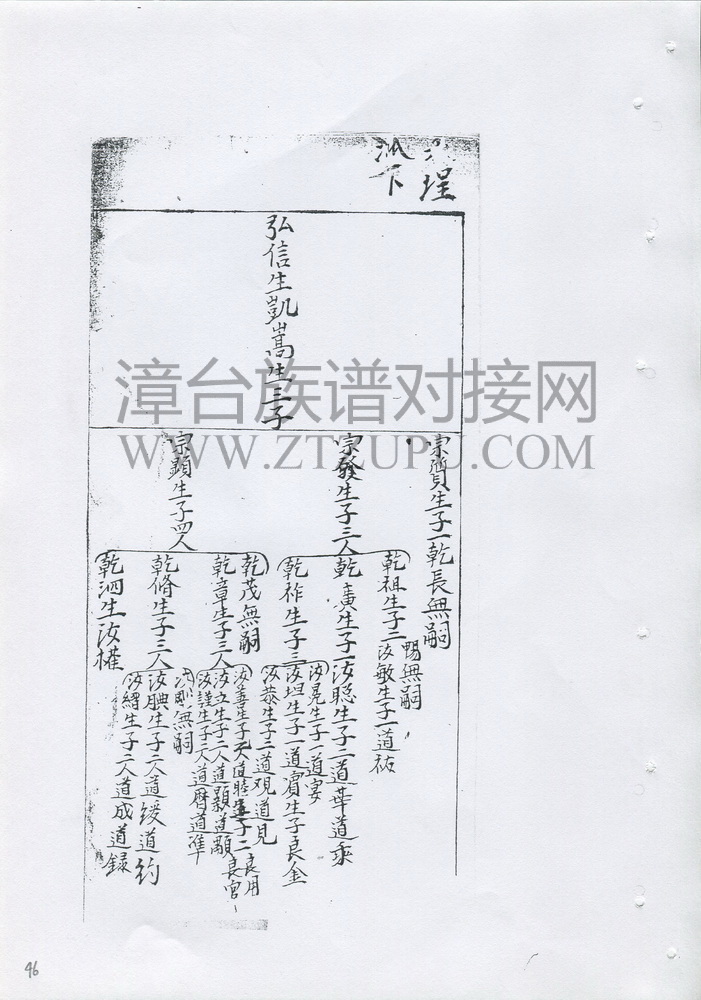 埕
派下
弘信生凱嵩生三子
宗質生子一乾長無嗣
宗發生子三人
宗顯生子四人
乾祖生子二
暢無嗣
汝敏生子一道祐
乾賡生子一汝聡生子二道華道乘
乾祚生子三
汝晃生子一道宴
汝坦生子一道賓生子良金
汝恭生子二道現道見
乾茂無嗣
乾章生子三人
汝善生子 道睦生子二
良用
良官
汝立生子二人道顯道顒
汝謹生子二人道曆道準
乾脩生子三人
汝剛無嗣
汝腆生子二人道緩道約
汝繹生子二人道成道録
乾泗生汝權
漳台族谱对接网
WWW.ZTZUPU.COM
46